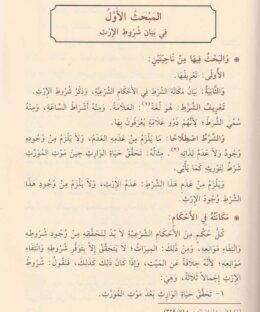 المَبْحَثُ الأَوَّلُ
فِي بَيَانِ شُرُوطِ الإِرْثِ
* وَالبَحْثُ فِيهَا مِنْ نَاحِيَتَيْنِ:
الأُولَى: تَعْرِيفُهَا.
وَالثَّانِيَةُ: بَيَانُ مَكَانَةِ الشَّرْطِ فِي الأَحْكَامِ الشَّرْعِيَّةِ، وَذِكْرُ شُرُوطِ الإِرْثِ.
تَعْرِيفُ الشَّرْطِ: هُوَ لُغَةً(١): العَلَامَةُ. وَمِنْهُ أَشْرَاطُ السَّاعَةِ، وَمِنْهُ
سُمِّيَ الشُّرَطُ؛ لِأَنَّهُمْ ذَوُو عَلَامَةٍ يُعْرَفُونَ بِهَا.
وَالشَّرْطُ اصْطِلَاحًا: مَا يَلْزَمُ مِنْ عَدَمِهِ العَدَمُ، وَلَا يَلْزَمُ مِنْ وُجُودِهِ
وُجُودٌ وَلَا عَدَمٌ لِذَاتِهِ(٢). مِثَالُهُ: تَحَقُّقُ حَيَاةِ الوَارِثِ حِينَ مَوْتِ المُوَرِّثِ
شَرْطٌ لِتَوْرِيثِهِ كَمَا يَأْتِي.
وَيَلْزَمُ مِنْ عَدَمِ هَذَا الشَّرْطِ: عَدَمُ الإِرْثِ، وَلَا يَلْزَمُ مِنْ وُجُودِ هَذَا
الشَّرْطِ وُجُودُ الإِرْثِ.
* مَكَانَتُهُ فِي الأَحْكَامِ:
كُلُّ حُكْمٍ مِنَ الأَحْكَامِ الشَّرْعِيَّةِ لَا بُدَّ لِتَحَقُّقِهِ مِنْ وُجُودِ شُرُوطِهِ،
وَانْتِفَاءِ مَوَانِعِهِ، وَمِنْ ذَلِكَ: المِيرَاثُ؛ لَا يَتَحَقَّقُ إِلَّا بِتَوَفُّرِ شُرُوطِهِ وَانْتِفَاءِ
مَوَانِعِهِ؛ لِأَنَّهُ خِلَافَةٌ عَنِ المَيِّتِ، وَإِذَا كَانَ ذَلِكَ كَذَلِكَ، فَنَقُولُ: شُرُوطُ
الإِرْثِ إِجْمَالًا ثَلَاثَةٌ، وَهِيَ:
١- تَحَقُّقُ حَيَاةِ الوَارِثِ بَعْدَ مَوْتِ المُوَرِّثِ.